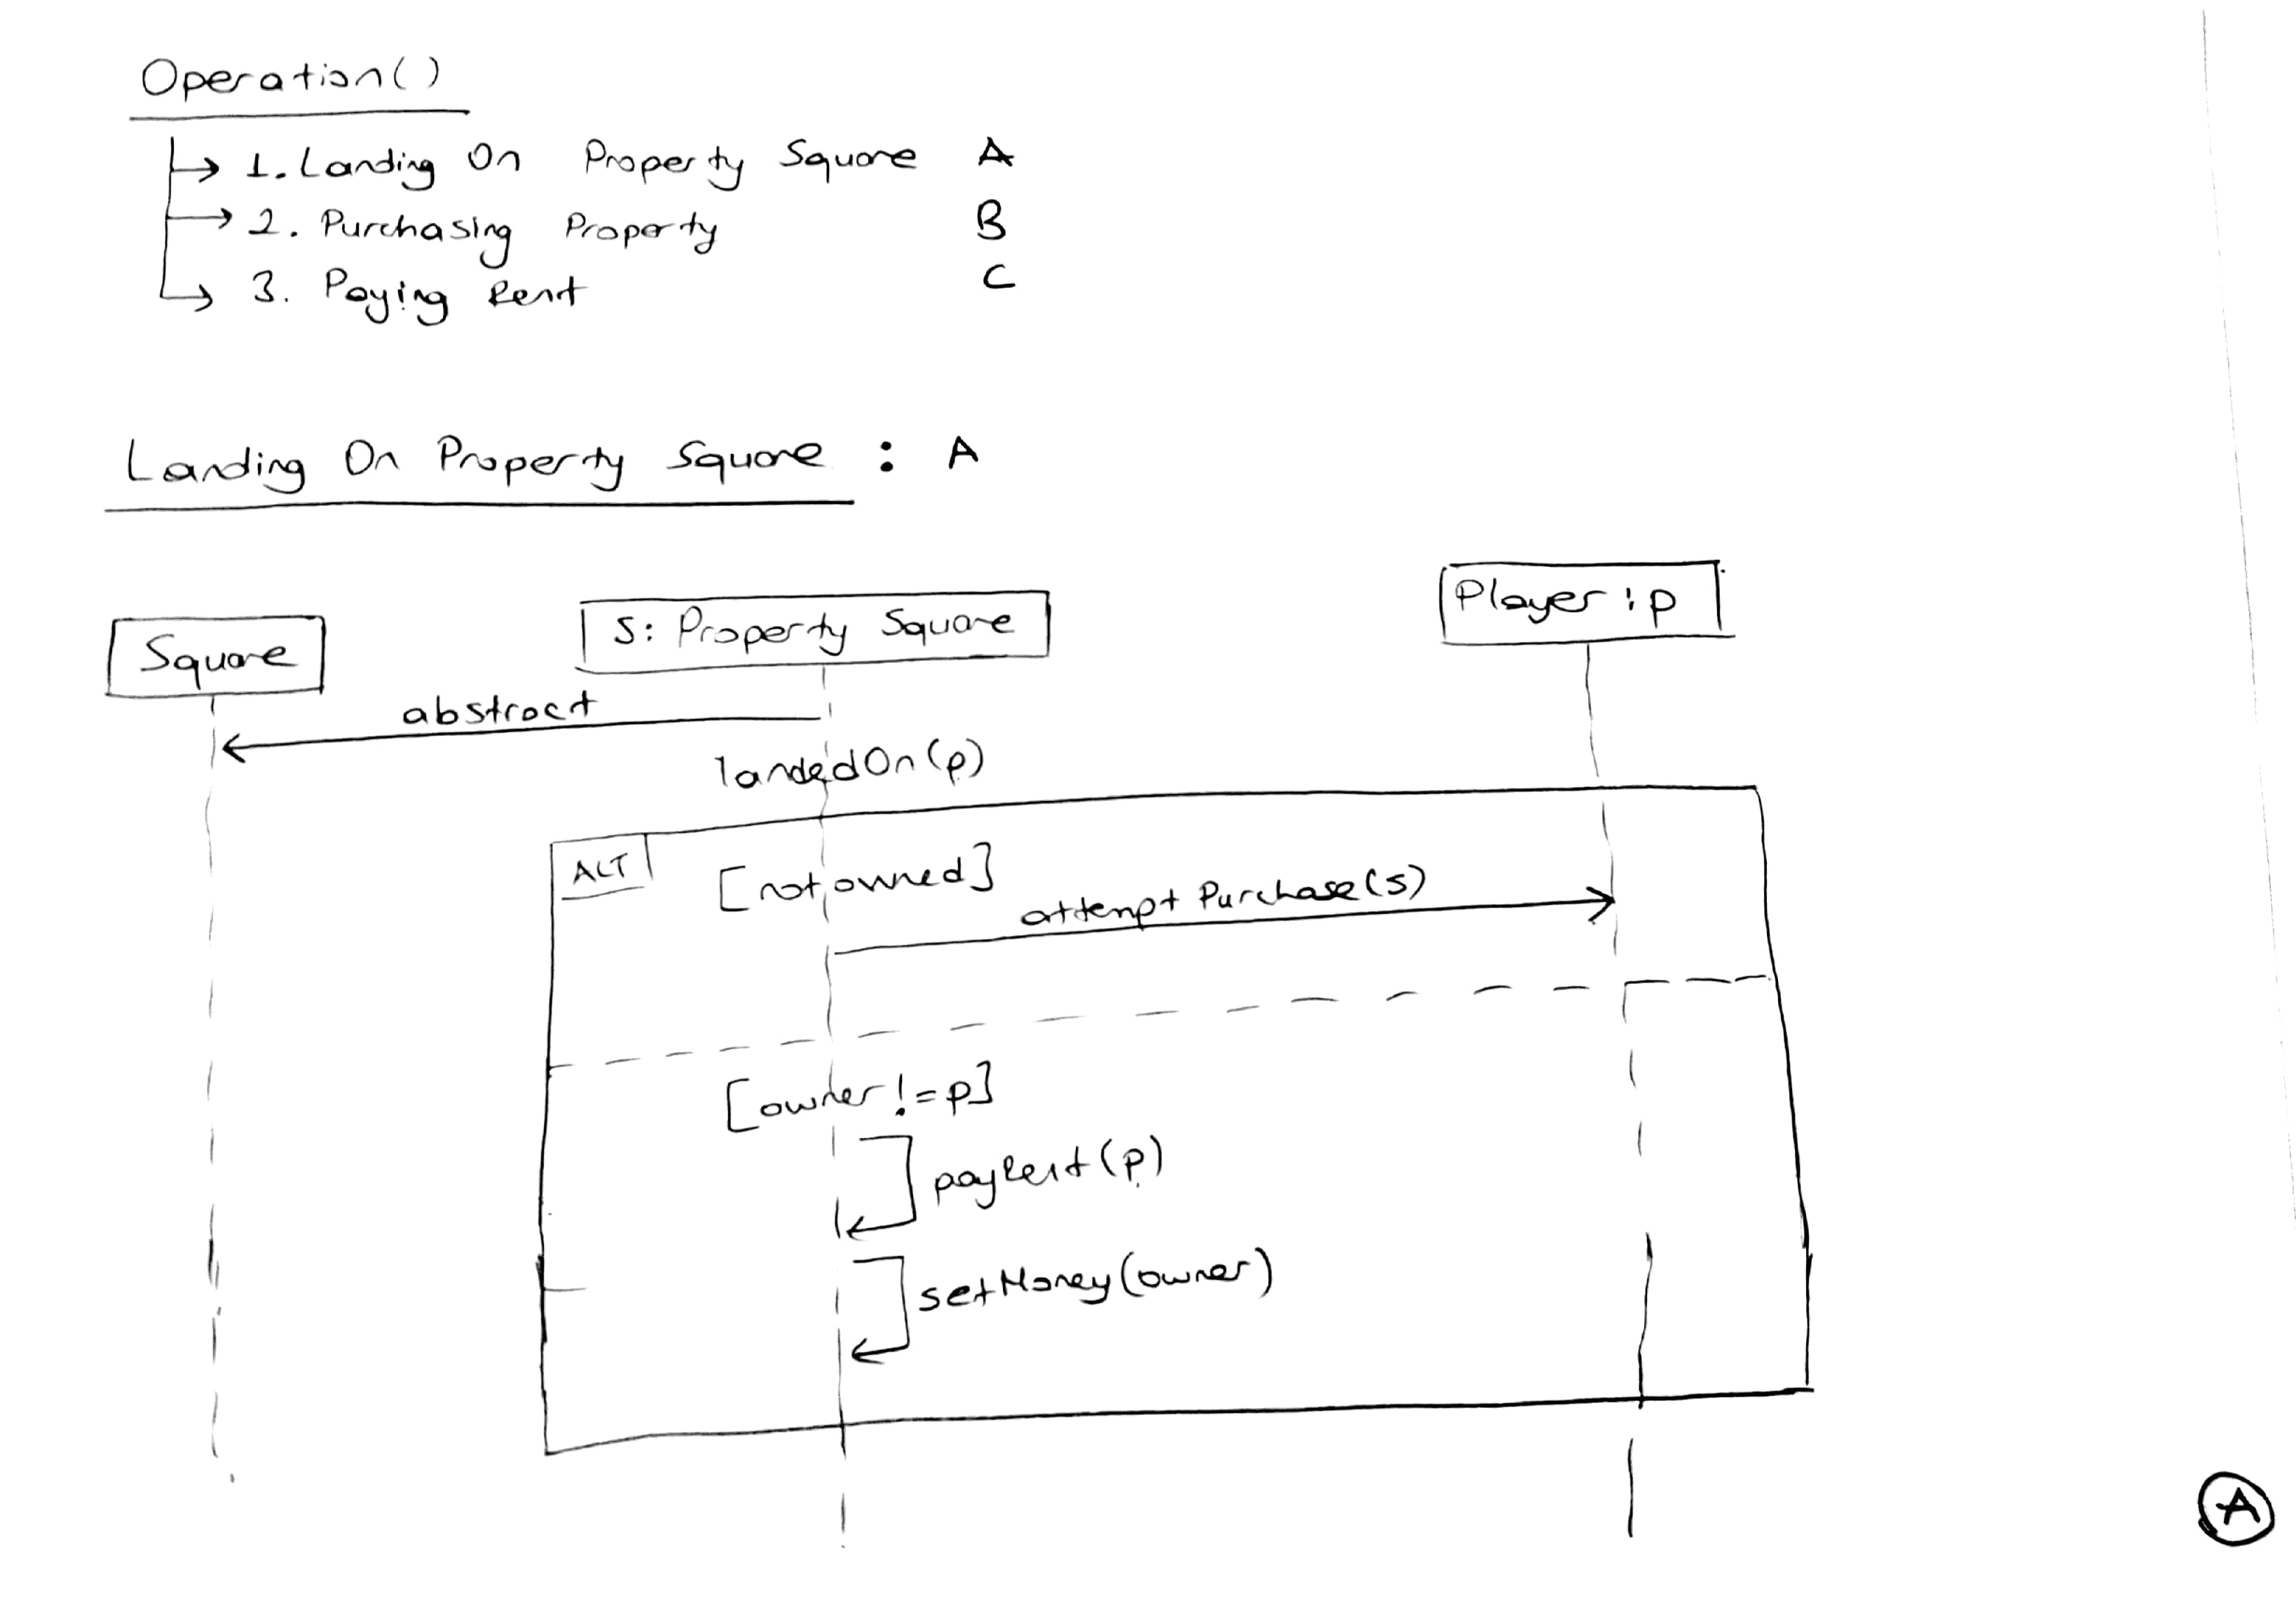 Operation()
1. Landing On Property Square A
2. Purchasing Property B
3. Paying Rent C
Landing On Property Square : A
Square
S: Property Square
Player : p
abstract
landedOn(p)
ALT
[not owned]
attemptPurchase(s)
[owner != p]
payRent(p)
setMoney(owner)
A